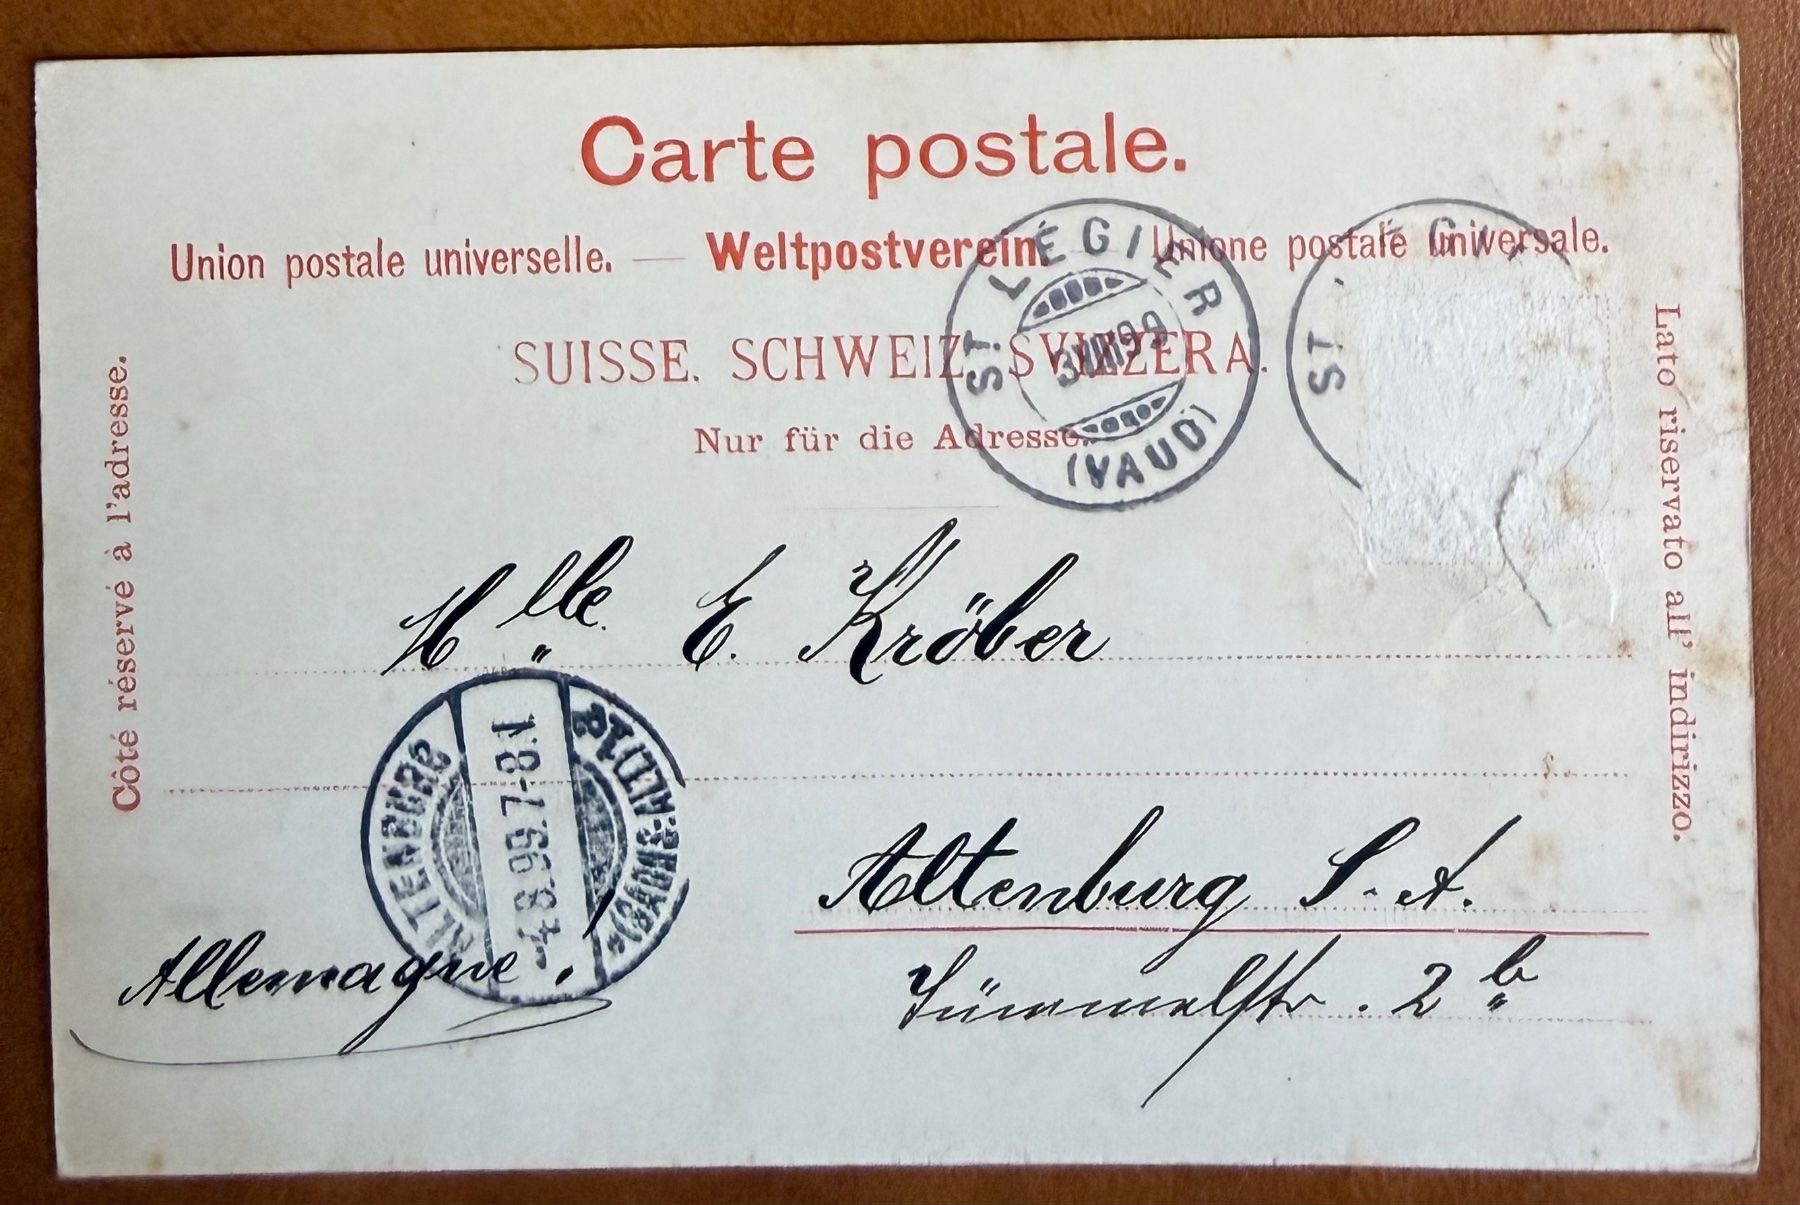 Carte postale.
Union postale universelle. — Weltpostverein. Unione postale universale.
SUISSE. SCHWEIZ. SVIZZERA.
Nur für die Adresse.
Côté réservé à l'adresse.
Lato riservato all' indirizzo.
ST. LÉGIER
3 VIII 99
(VAUD)
ST.
Mlle E. Kröber
ALTENBURG
-4.8.99.7-8.V
Altenburg S. A.
Allemagne.
2b